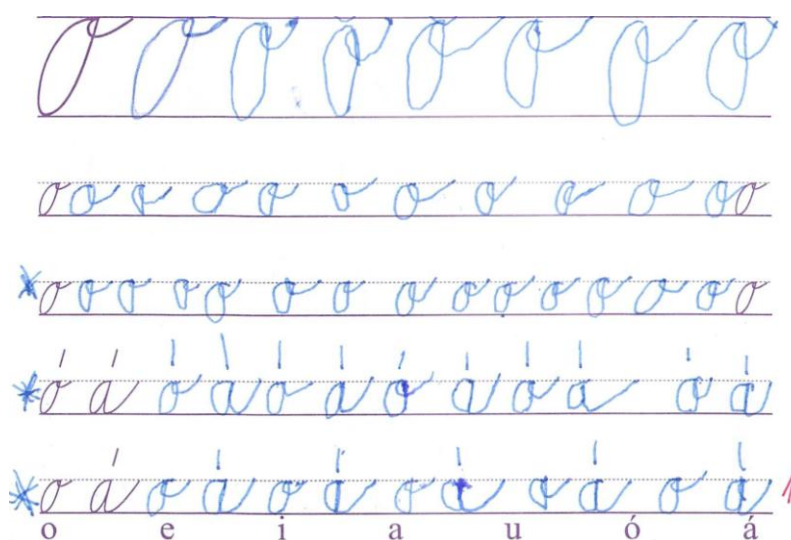 o o o o o o o o
o o o o o o o o o o o o
o o o o o o o o o o o o o o o
ó á ó á ó á ó á ó á ó á
o á o á o á o á o á o á
o e i a u ó á